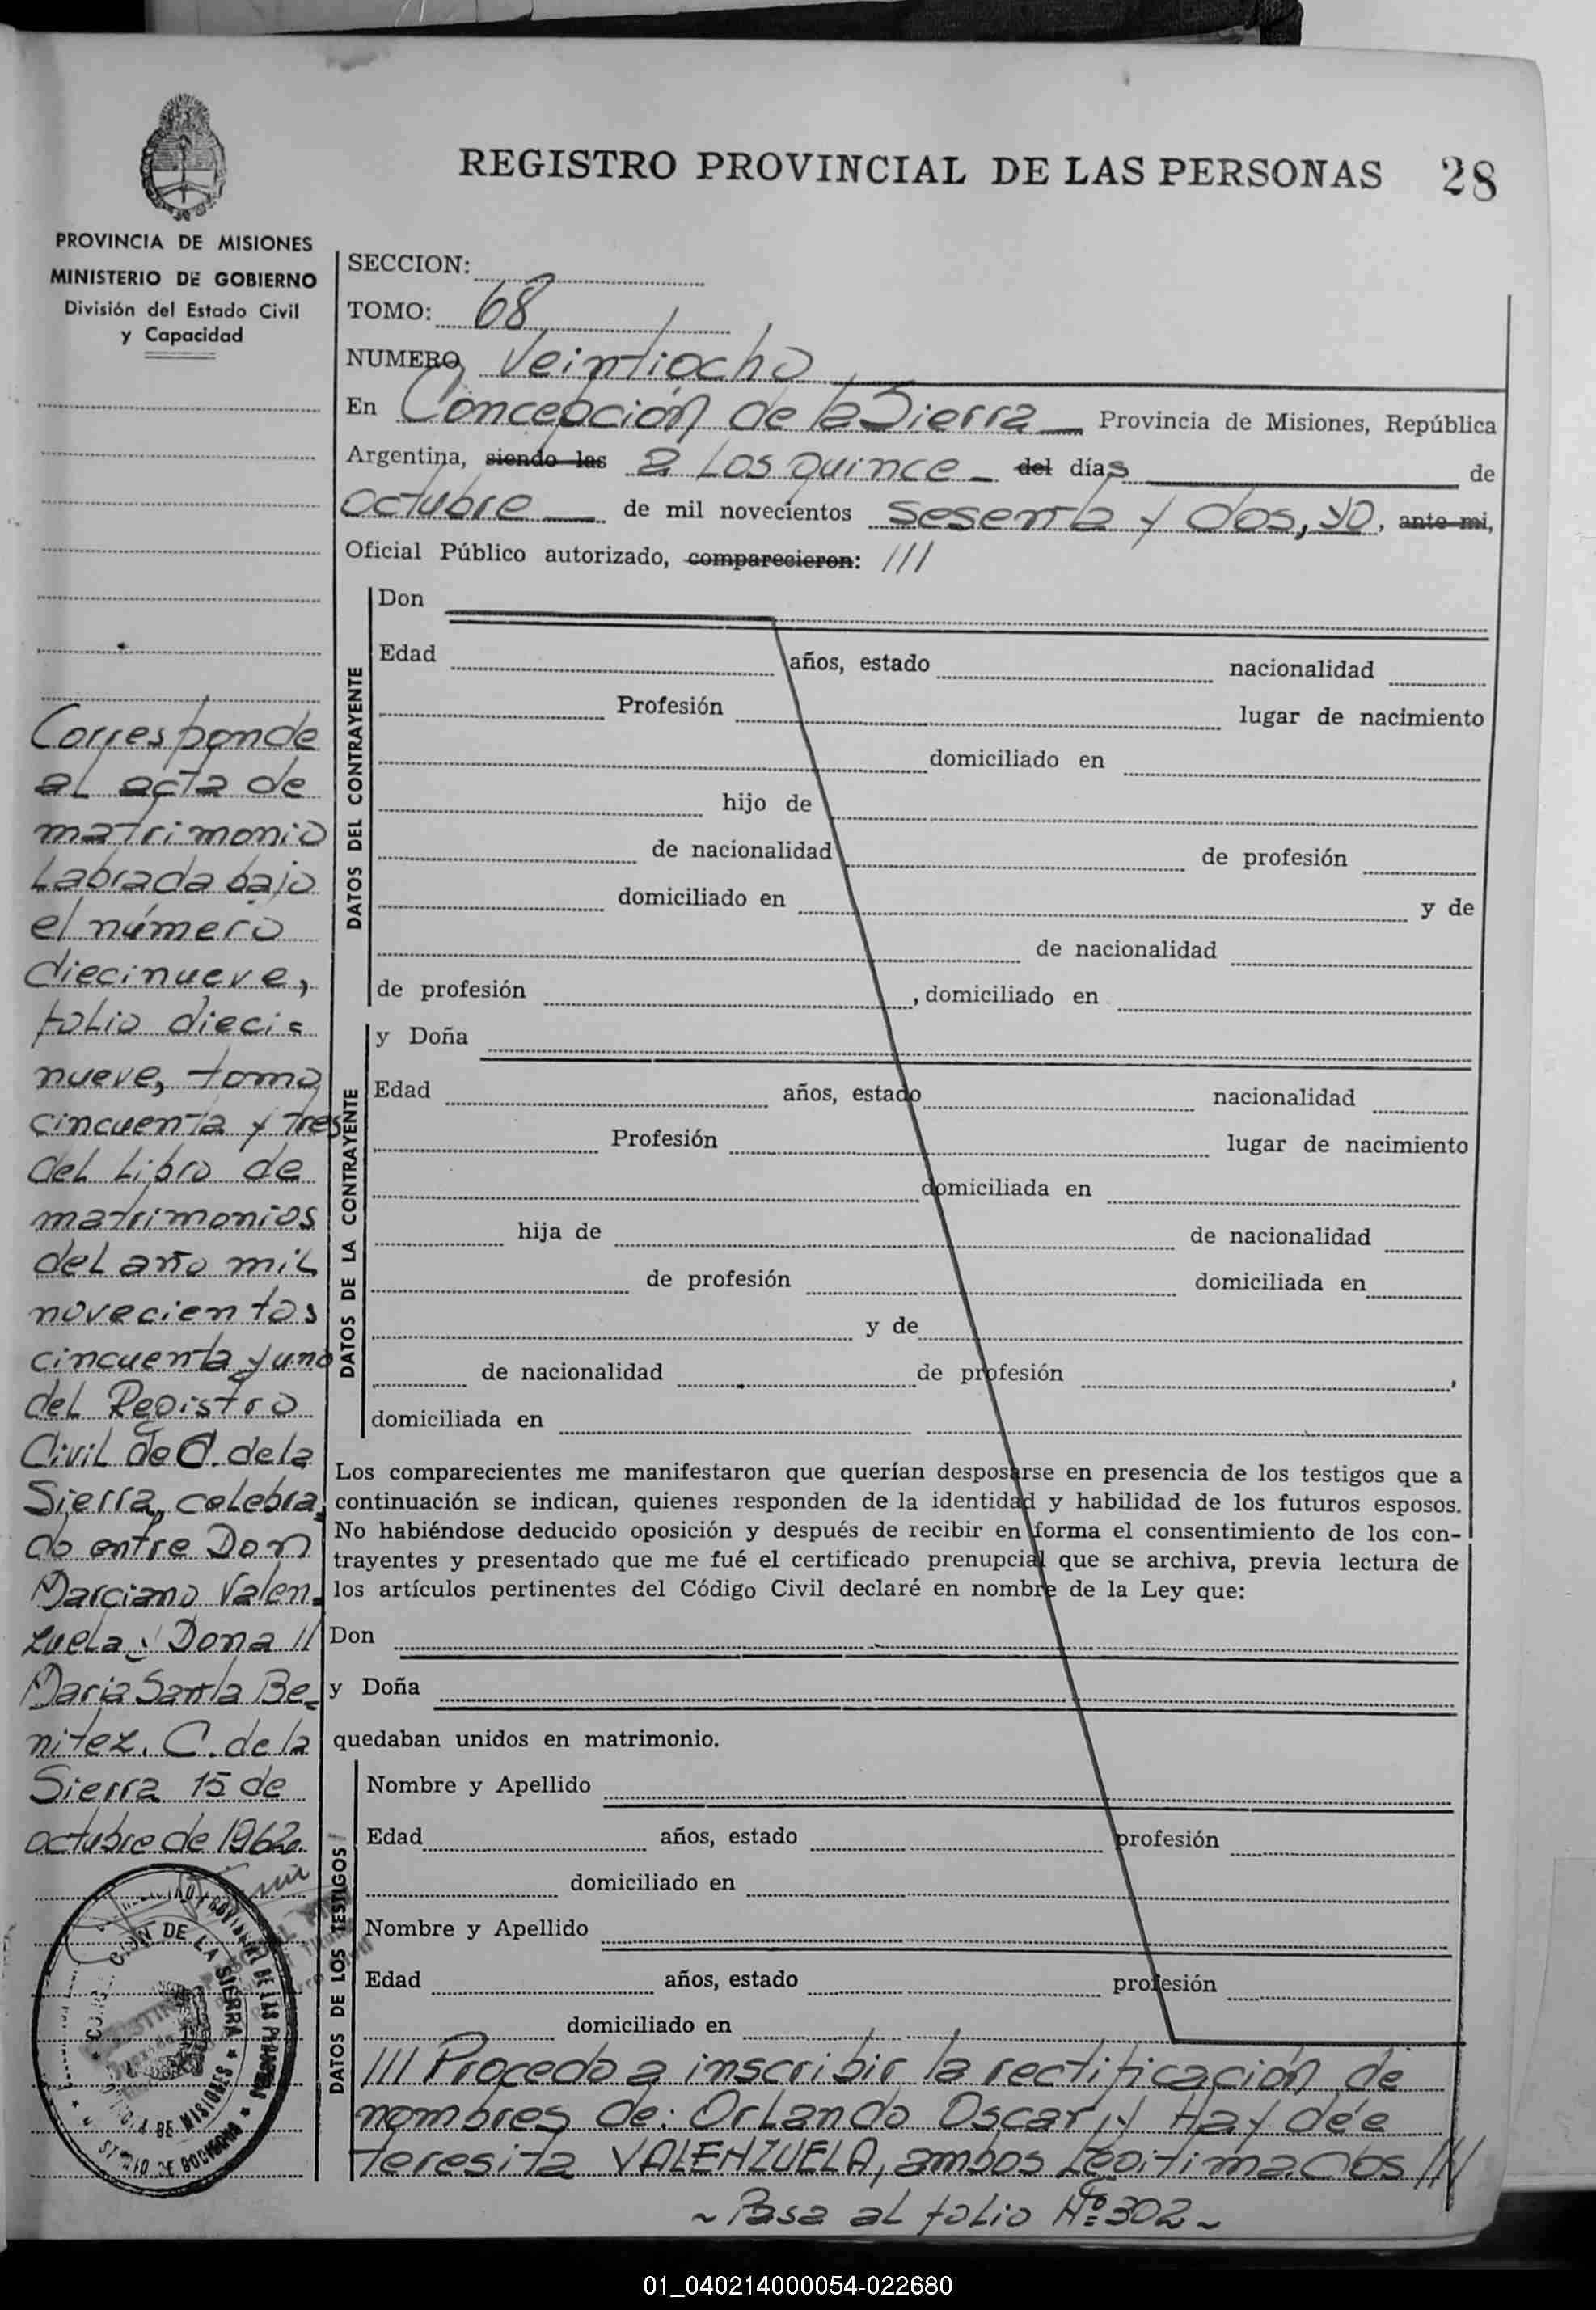 REGISTRO PROVINCIAL DE LAS PERSONAS 28
PROVINCIA DE MISIONES
MINISTERIO DE GOBIERNO
División del Estado Civil
y Capacidad
SECCION:
TOMO: 68
NUMERO Veintiocho
En Concepción de la Sierra Provincia de Misiones, República
Argentina, siendo las a los quince del días de
octubre de mil novecientos sesenta y dos, yo, ante mi,
Oficial Público autorizado, comparecieron: ///
DATOS DEL CONTRAYENTE
Don
Edad años, estado nacionalidad
Profesión lugar de nacimiento
domiciliado en
hijo de
de nacionalidad de profesión
domiciliado en y de
de nacionalidad
de profesión , domiciliado en
DATOS DE LA CONTRAYENTE
y Doña
Edad años, estado nacionalidad
Profesión lugar de nacimiento
domiciliada en
hija de de nacionalidad
de profesión domiciliada en
y de
de nacionalidad de profesión ,
domiciliada en
Los comparecientes me manifestaron que querían desposarse en presencia de los testigos que a
continuación se indican, quienes responden de la identidad y habilidad de los futuros esposos.
No habiéndose deducido oposición y después de recibir en forma el consentimiento de los con-
trayentes y presentado que me fué el certificado prenupcial que se archiva, previa lectura de
los artículos pertinentes del Código Civil declaré en nombre de la Ley que:
Don
y Doña
quedaban unidos en matrimonio.
DATOS DE LOS TESTIGOS
Nombre y Apellido
Edad años, estado profesión
domiciliado en
Nombre y Apellido
Edad años, estado profesión
domiciliado en
/// Procedo a inscribir la rectificación de
nombres de: Orlando Oscar, y Haydée
teresita VALENZUELA, ambos legitimados ///
~ Pasa al folio Nº 302 ~
Corresponde
al acta de
matrimonio
labrada bajo
el número
diecinueve,
folio dieci=
nueve, tomo
cincuenta y tres
del libro de
matrimonios
del año mil
novecientos
cincuenta y uno
del Registro
Civil de C. de la
Sierra, celebra=
do entre Don
Marciano Valen=
zuela y Dona //
María Santa Be=
nitez. C. de la
Sierra 15 de
octubre de 1962.
DE LA SIERRA
01_040214000054-022680